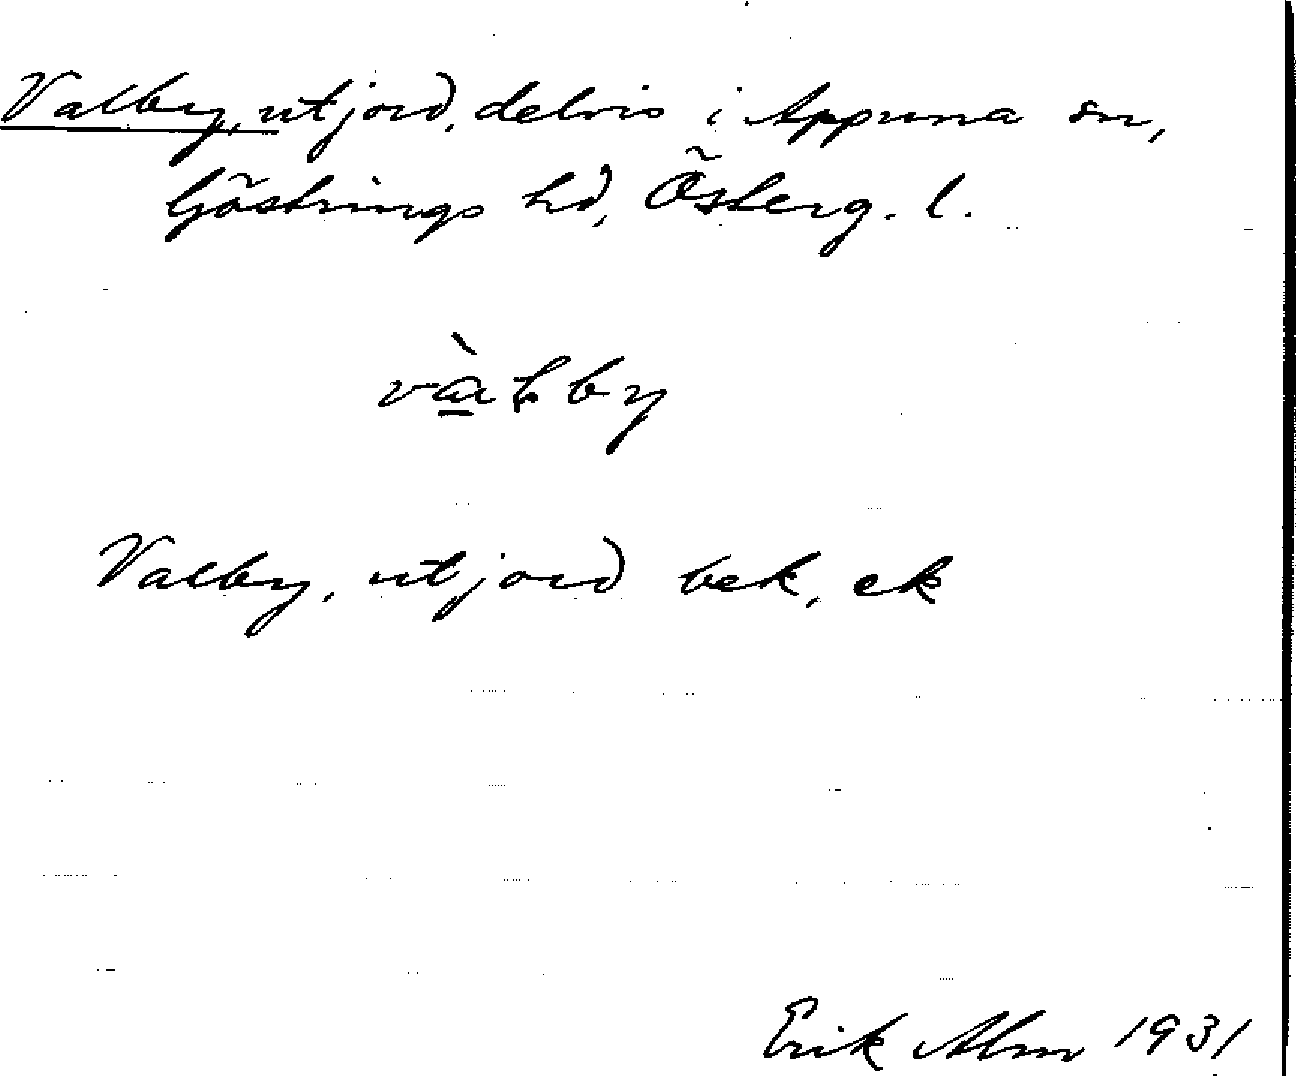 Valby, utjord, delvis i Appuna sn,
Göstrings hd, Österg. l.
Valby, utjord bek, ek
Erik Alm 1931